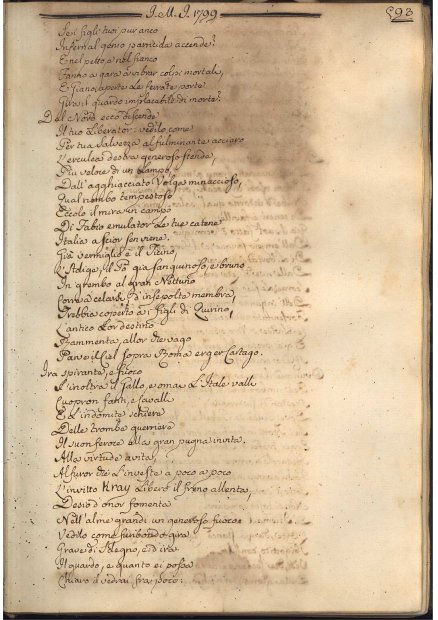 J. M. J. 1799
593
Se i figli tuoi pur anco
Infernal genio parricida accende?
E nel petto, e nel fianco
Tanto a gara a vibrar colpi mortali,
E Giano aperte le ferrate porte
Gira il guardo implacabile di morte?
Del Nord ecco discende
Il tuo Liberator: vedilo come
Per tua salvezza al fulminante acciaro
L'erculea destra generoso stende,
Più veloce di un Lampo,
Dall'agghiacciato Volga minaccioso,
Qual nembo tempestoso
Eccolo il mira in campo
Di Fabio emulator le tue catene
Italia a scior sen viene.
Già vermiglio è il Ticino,
L'Adige, il Pò già sanguinoso, e bruno
In grembo al gran Nettuno
Corre a celarsi d'insepolte membra,
Trebbia coperto a i figli di Quirino,
L'antico Lor destino
Rammenta, allor che vago
Parve il Ciel sopra Roma erger Cartago.
Ira spirante, e fuoco
S'inoltra il Gallo, e omai L'Itale valli
Cuopron fanti, e cavalli
E L'indomite schiere
Delle trombe guerriere
Il suon feroce alla gran pugna invita.
Alla virtude avita,
Al furor che L'investe a poco a poco
L'invitto Kray Libero il freno allenta,
Desio d'onor fomenta
Nell'alme grandi un generoso fuoco:
Vedilo come furibondo gira
Grave di sdegno, ed ira
Il guardo, e quanto ei possa
Chiaro il vedrai fra poco: